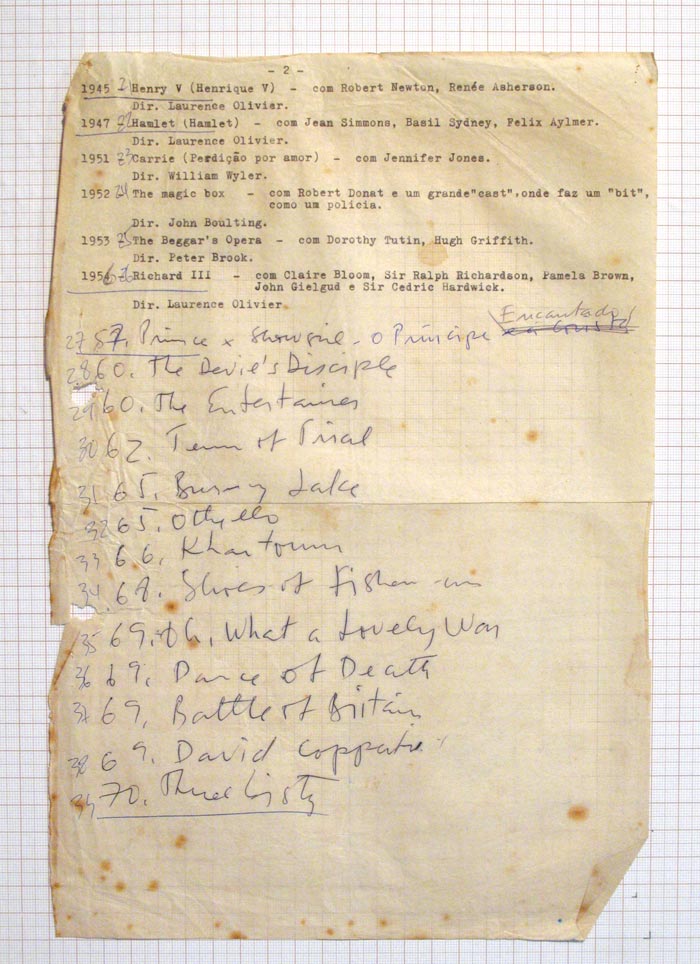 - 2 -
1945 21 Henry V (Henrique V) - com Robert Newton, Renée Asherson.
Dir. Laurence Olivier.
1947 22 Hamlet (Hamlet) - com Jean Simmons, Basil Sydney, Felix Aylmer.
Dir. Laurence Olivier.
1951 23 Carrie (Perdição por amor) - com Jennifer Jones.
Dir. William Wyler.
1952 24 The magic box - com Robert Donat e um grande"cast",onde faz um "bit",
como um policia.
Dir. John Boulting.
1953 25 The Beggar's Opera - com Dorothy Tutin, Hugh Griffith.
Dir. Peter Brook.
1956 26 Richard III - com Claire Bloom, Sir Ralph Richardson, Pamela Brown,
John Gielgud e Sir Cedric Hardwick.
Dir. Laurence Olivier
Encantado
27 57. Prince x Showgirl - O Príncipe
28 60. The Devil's Disciple
29 60. The Entertainer
30 62. Term of Trial
31 65. Bunny Lake
32 65. Othello
33 66. Khartoum
34 68. Shoes of Fisherman
35 69. Oh, What a Lovely War
36 69. Dance of Death
37 69. Battle of Britain
38 69. David
39 70. Three